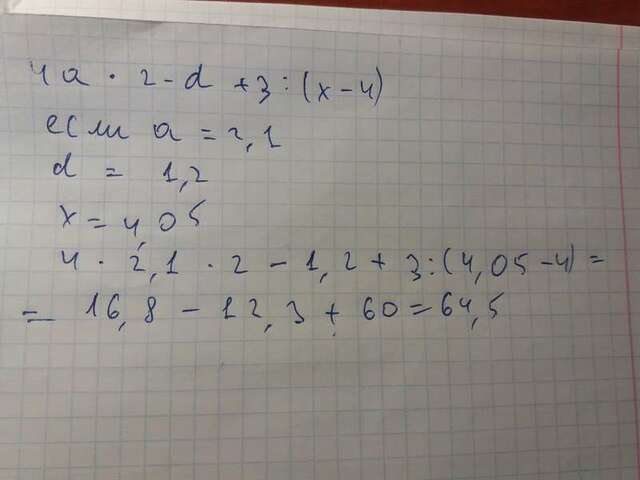 4a · 2 - d + 3 : (x - 4)
если a = 2,1
d = 1,2
x = 4,05
4 · 2,1 · 2 - 1,2 + 3 : (4,05 - 4) =
= 16,8 - 12,3 + 60 = 64,5